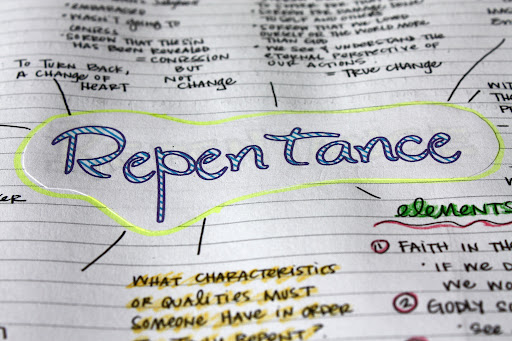 EMBARRASSED
• WASN'T GOING TO
CONFESS
SORROW THAT THE SIN
HAS BEEN REVEALED
= CONFESSION
BUT
NOT
CHANGE
TO TURN BACK,
A CHANGE OF
HEART
TO SELF AND THE LORD
SELF OR THE WORLD MORE
THAN GOD
• WE SEE & UNDERSTAND THE
ETERNAL PERSPECTIVE OF
OUR ACTIONS
= TRUE CHANGE
MIND AND
WIT
THE
Repentance
WHAT CHARACTERISTICS
OR QUALITIES MUST
SOMEONE HAVE IN ORDER
TO TRULY REPENT?
elements
① FAITH IN TH
• IF WE D
WE WO
② GODLY SO
• SEE